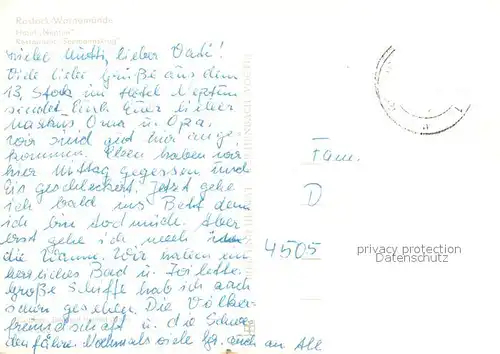 Rostock-Warnemünde
Hotel „Neptun“
Liebe Mutti, lieber Vati!
Viele liebe Grüße aus dem
13. Stock im Hotel Neptun
sendet Euch Euer lieber
Oma u. Opa.
Wir sind gut hier ange-
kommen. Eben haben wir
hier Mittag gegessen und
Eis geschleckert. Jetzt gehe
ich bald ins Bett denn
ich bin todmüde. Aber
erst gehe ich noch in
die Wanne. Wir haben ein
herrliches Bad u. Toilette.
Große Schiffe hab ich auch
schon gesehen. Die Völker-
freundschaft u. die Schwe-
denfähre. Nochmals viele Gr. auch an Alle
Fam.
D
4505
privacy protection
Datenschutz